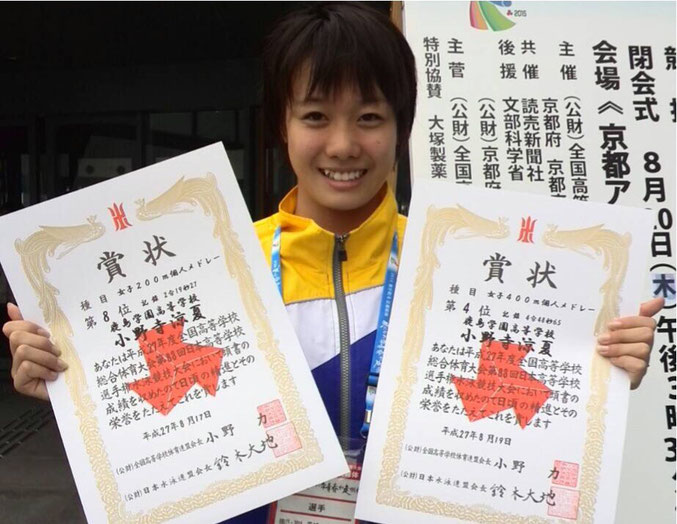 賞状
種目 女子200m個人メドレー
第8位 記録 2分19秒27
鹿島学園高等学校
小野寺涼夏
あなたは平成27年度全国高等学校
総合体育大会第83回日本高等学校
選手権水泳競技大会において頭書の
成績を収めたので日頃の精進とその
栄誉をたたえてこれを賞します
平成27年8月17日
(公財)全国高等学校体育連盟会長 小野 力
(公財)日本水泳連盟会長 鈴木大地
賞状
種目 女子400m個人メドレー
第4位 記録 4分48秒65
鹿島学園高等学校
小野寺涼夏
あなたは平成27年度全国高等学校
総合体育大会第83回日本高等学校
選手権水泳競技大会において頭書の
成績を収めたので日頃の精進とその
栄誉をたたえてこれを賞します
平成27年8月19日
(公財)全国高等学校体育連盟会長 小野 力
(公財)日本水泳連盟会長 鈴木大地
2015
閉会式 8月20日(木)午後3時
会場《京都ア
主催 (公財)全国高等
京都府 京都
共催 読売新聞社
後援 文部科学省
主管 (公財)全国
(公財)京都府
特別協賛 大塚製薬
選手